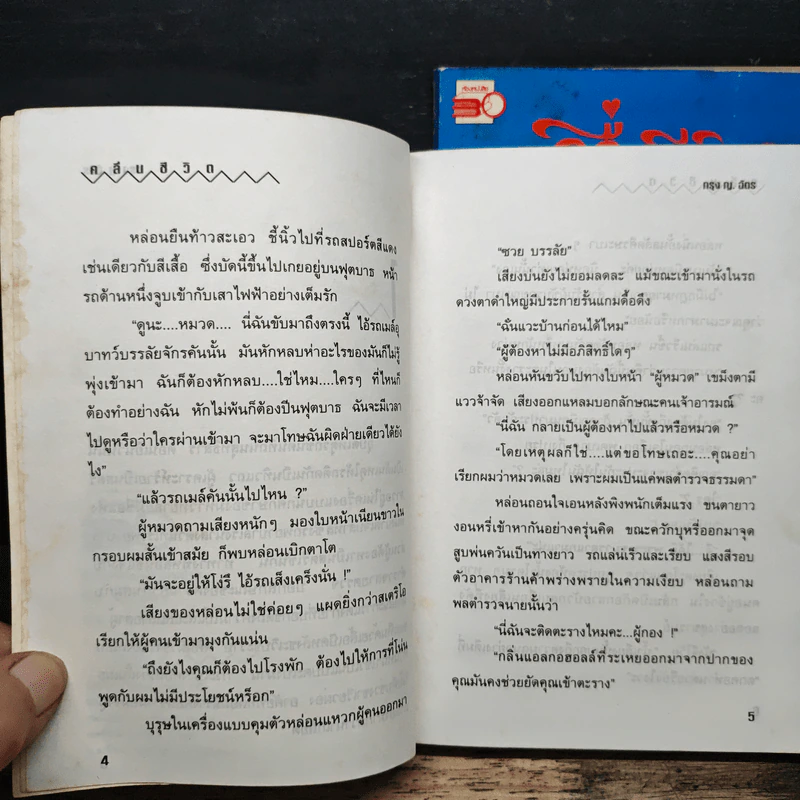 คลื่นชีวิต
หล่อนยืนท้าวสะเอว ชี้นิ้วไปที่รถสปอร์ตสีแดง
เช่นเดียวกับสีเสื้อ ซึ่งบัดนี้ขึ้นไปเกยอยู่บนฟุตบาธ หน้า
รถด้านหนึ่งจูบเข้ากับเสาไฟฟ้าอย่างเต็มรัก
“ดูนะ....หมวด.... นี่ฉันขับมาถึงตรงนี้ ไอ้รถเมล์อุ
บาทว์บรรลัยจักรคันนั้น มันหักหลบห่าอะไรของมันก็ไม่รู้
พุ่งเข้ามา ฉันก็ต้องหักหลบ....ใช่ไหม....ใครๆ ที่ไหนก็
ต้องทำอย่างฉัน หักไม่พ้นก็ต้องปีนฟุตบาธ ฉันจะมีเวลา
ไปดูหรือว่าใครผ่านเข้ามา จะมาโทษฉันผิดฝ่ายเดียวได้ยัง
ไง”
“แล้วรถเมล์คันนั้นไปไหน ?”
ผู้หมวดถามเสียงหนักๆ มองใบหน้าเนียนขาวใน
กรอบผมสั้นเข้าสมัย ก็พบหล่อนเบิกตาโต
“มันจะอยู่ให้โง่รึ ไอ้รถเส็งเคร็งนั่น !”
เสียงของหล่อนไม่ใช่ค่อยๆ แผดยิ่งกว่าสเตริโอ
เรียกให้ผู้คนเข้ามามุงกันแน่น
“ถึงยังไงคุณก็ต้องไปโรงพัก ต้องไปให้การที่โน่น
พูดกับผมไม่มีประโยชน์หร็อก”
บุรุษในเครื่องแบบคุมตัวหล่อนแหวกผู้คนออกมา
4
กรุง ญ. ฉัตร
“ซวย บรรลัย”
เสียงบ่นยังไม่ยอมลดละ แม้ขณะเข้ามานั่งในรถ
ดวงตาดำใหญ่มีประกายรั้นแกมดื้อดึง
“ฉันแวะบ้านก่อนได้ไหม”
“ผู้ต้องหาไม่มีอภิสิทธิ์ใดๆ”
หล่อนหันขวับไปทางใบหน้า “ผู้หมวด” เขม็งตามี
แววจ้าจัด เสียงออกแหลมบอกลักษณะคนเจ้าอารมณ์
“นี่ฉัน กลายเป็นผู้ต้องหาไปแล้วหรือหมวด ?”
“โดยเหตุผลก็ใช่....แต่ขอโทษเถอะ....คุณอย่า
เรียกผมว่าหมวดเลย เพราะผมเป็นแค่พลตำรวจธรรมดา”
หล่อนถอนใจเอนหลังพิงพนักเต็มแรง ขนตายาว
งอนหรี่เข้าหากันอย่างครุ่นคิด ขณะควักบุหรี่ออกมาจุด
สูบพ่นควันเป็นทางยาว รถแล่นเร็วและเรียบ แสงสีรอบ
ตัวอาคารร้านค้าพร่างพรายในความเงียบ หล่อนถาม
พลตำรวจนายนั้นว่า
“นี่ฉันจะติดตะรางไหมคะ...ผู้กอง !”
“กลิ่นแอลกอฮอลล์ที่ระเหยออกมาจากปากของ
คุณมันคงช่วยยัดคุณเข้าตะราง”
5